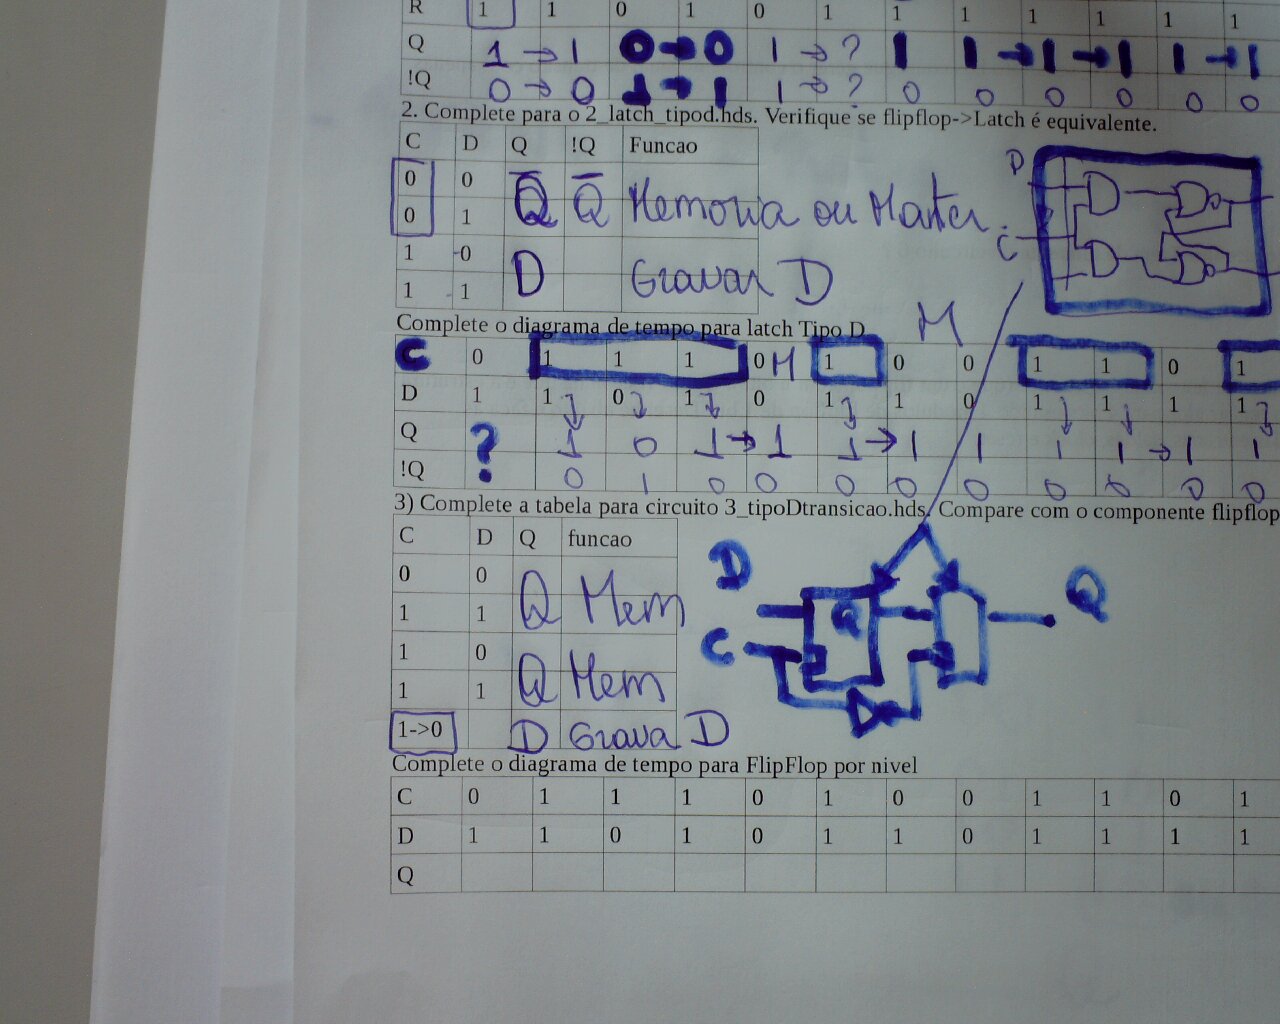 R 1 1 0 1 0 1 1 1 1 1 1 1
Q 1 → 1 0 → 0 1 → ? 1 1 → 1 → 1 1 → 1
!Q 0 → 0 1 → 1 1 → ? 0 0 0 0 0 0
2. Complete para o 2_latch_tipod.hds. Verifique se flipflop->Latch é equivalente.
C D Q !Q Funcao
0 0
Q Q Memoria ou Manter. D
0 1
C
1 0
D Gravar D
1 1
Complete o diagrama de tempo para latch Tipo D M
C 0 1 1 1 0 M 1 0 0 1 1 0 1
D 1 1 0 1 0 1 1 0 1 1 1 1
Q ? 1 0 1 → 1 1 → 1 1 1 1 → 1 1
!Q 0 1 0 0 0 0 0 0 0 0 0
3) Complete a tabela para circuito 3_tipoDtransicao.hds. Compare com o componente flipflop
C D Q funcao
0 0
Q Mem
1 1
1 0
Q Mem
1 1
1->0 D Grava D
D Q Q
C
Complete o diagrama de tempo para FlipFlop por nivel
C 0 1 1 1 0 1 0 0 1 1 0 1
D 1 1 0 1 0 1 1 0 1 1 1 1
Q